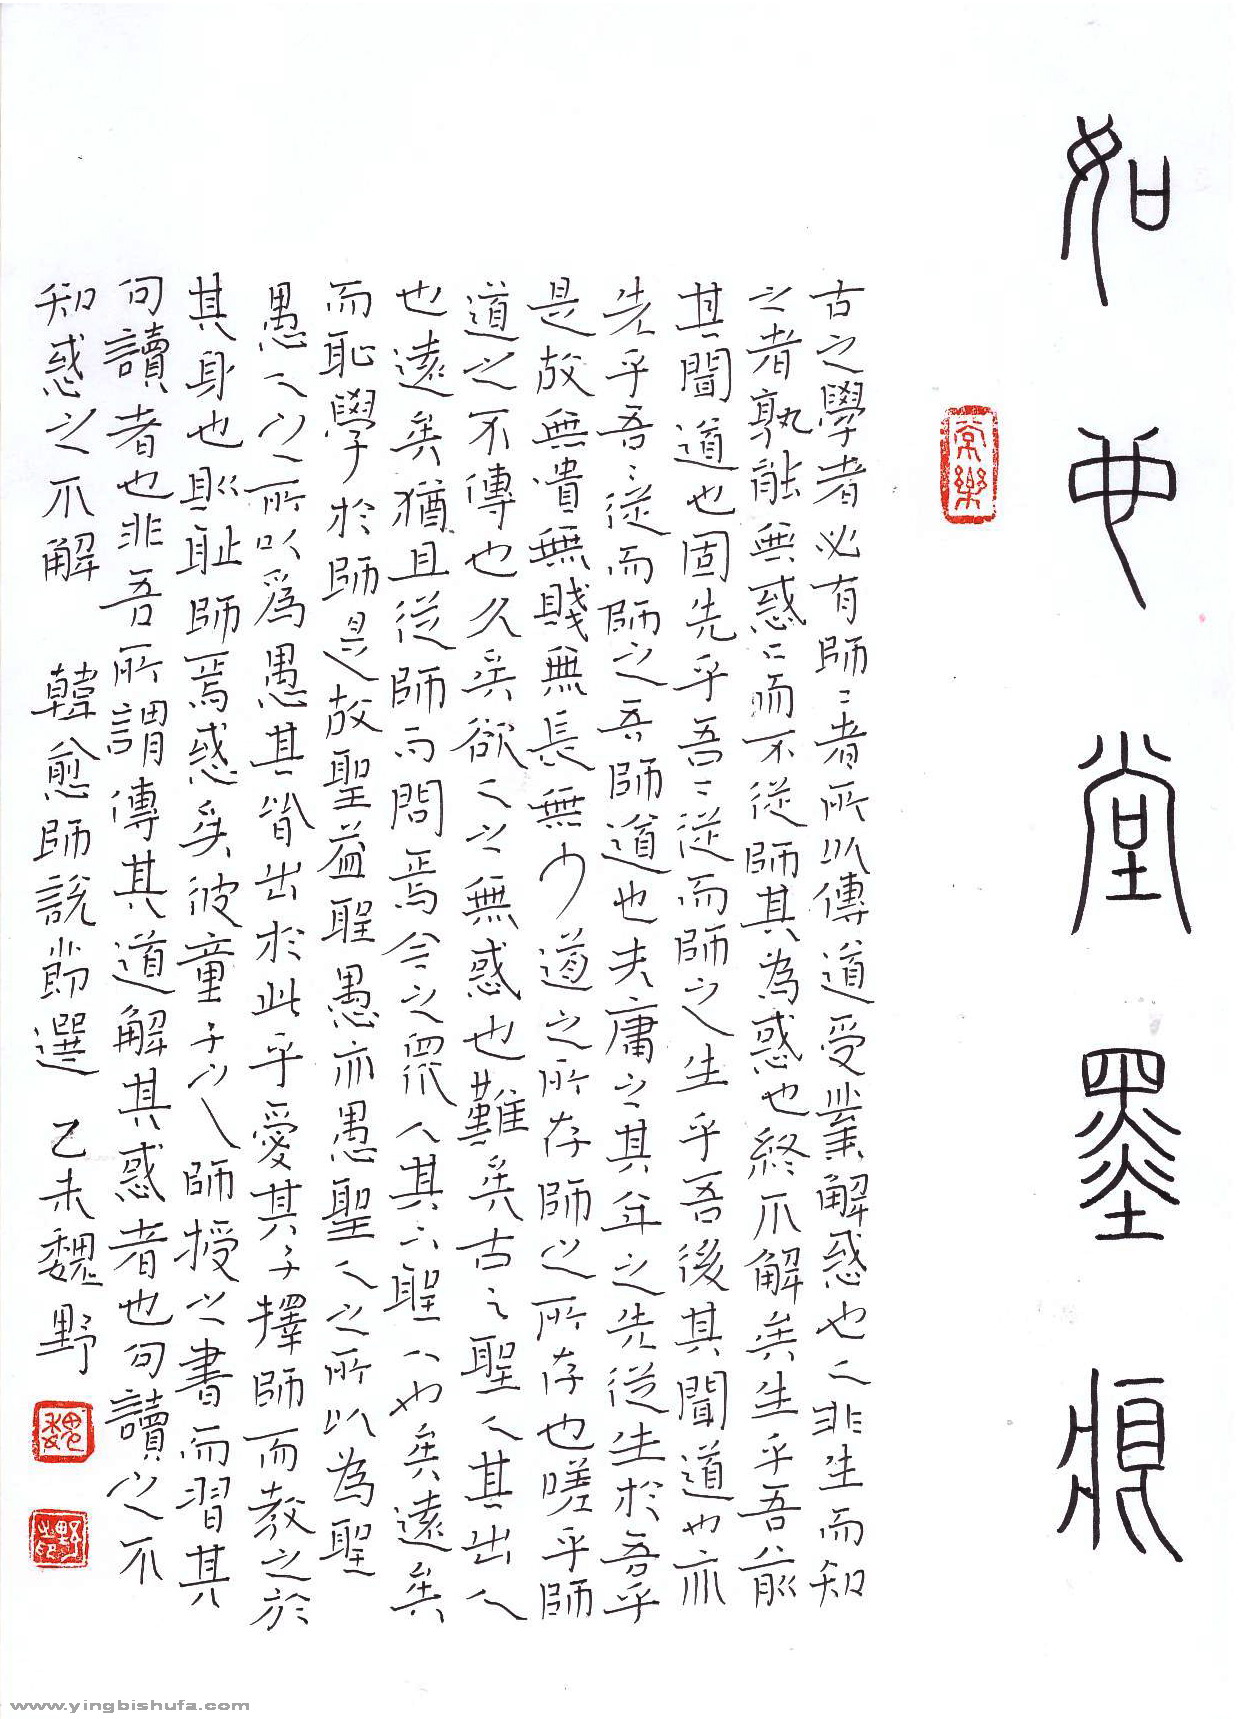 如堂墨痕
常樂
古之學者必有師〻者所以傳道受業解惑也人非生而知
之者孰能無惑〻而不從師其為惑也終不解矣生乎吾前
其聞道也固先乎吾〻從而師之生乎吾後其聞道也亦
先乎吾〻從而師之吾師道也夫庸之其年之先從生於吾乎
是故無貴無賤無長無少道之所存師之所存也嗟乎師
道之不傳也久矣欲人之無惑也難矣古之聖人其出人
也遠矣猶且從師而問焉今之眾人其下聖人也矣遠矣
而恥學於師是故聖益聖愚亦愚聖人之所以為聖
愚人之所以為愚其皆出於此乎愛其子擇師而教之於
其身也則耻師焉惑矣彼童子之師授之書而習其
句讀者也非吾所謂傳其道解其惑者也句讀之不
知惑之不解 韓愈師說節選 乙未魏野
魏
野印
www.yingbishufa.com